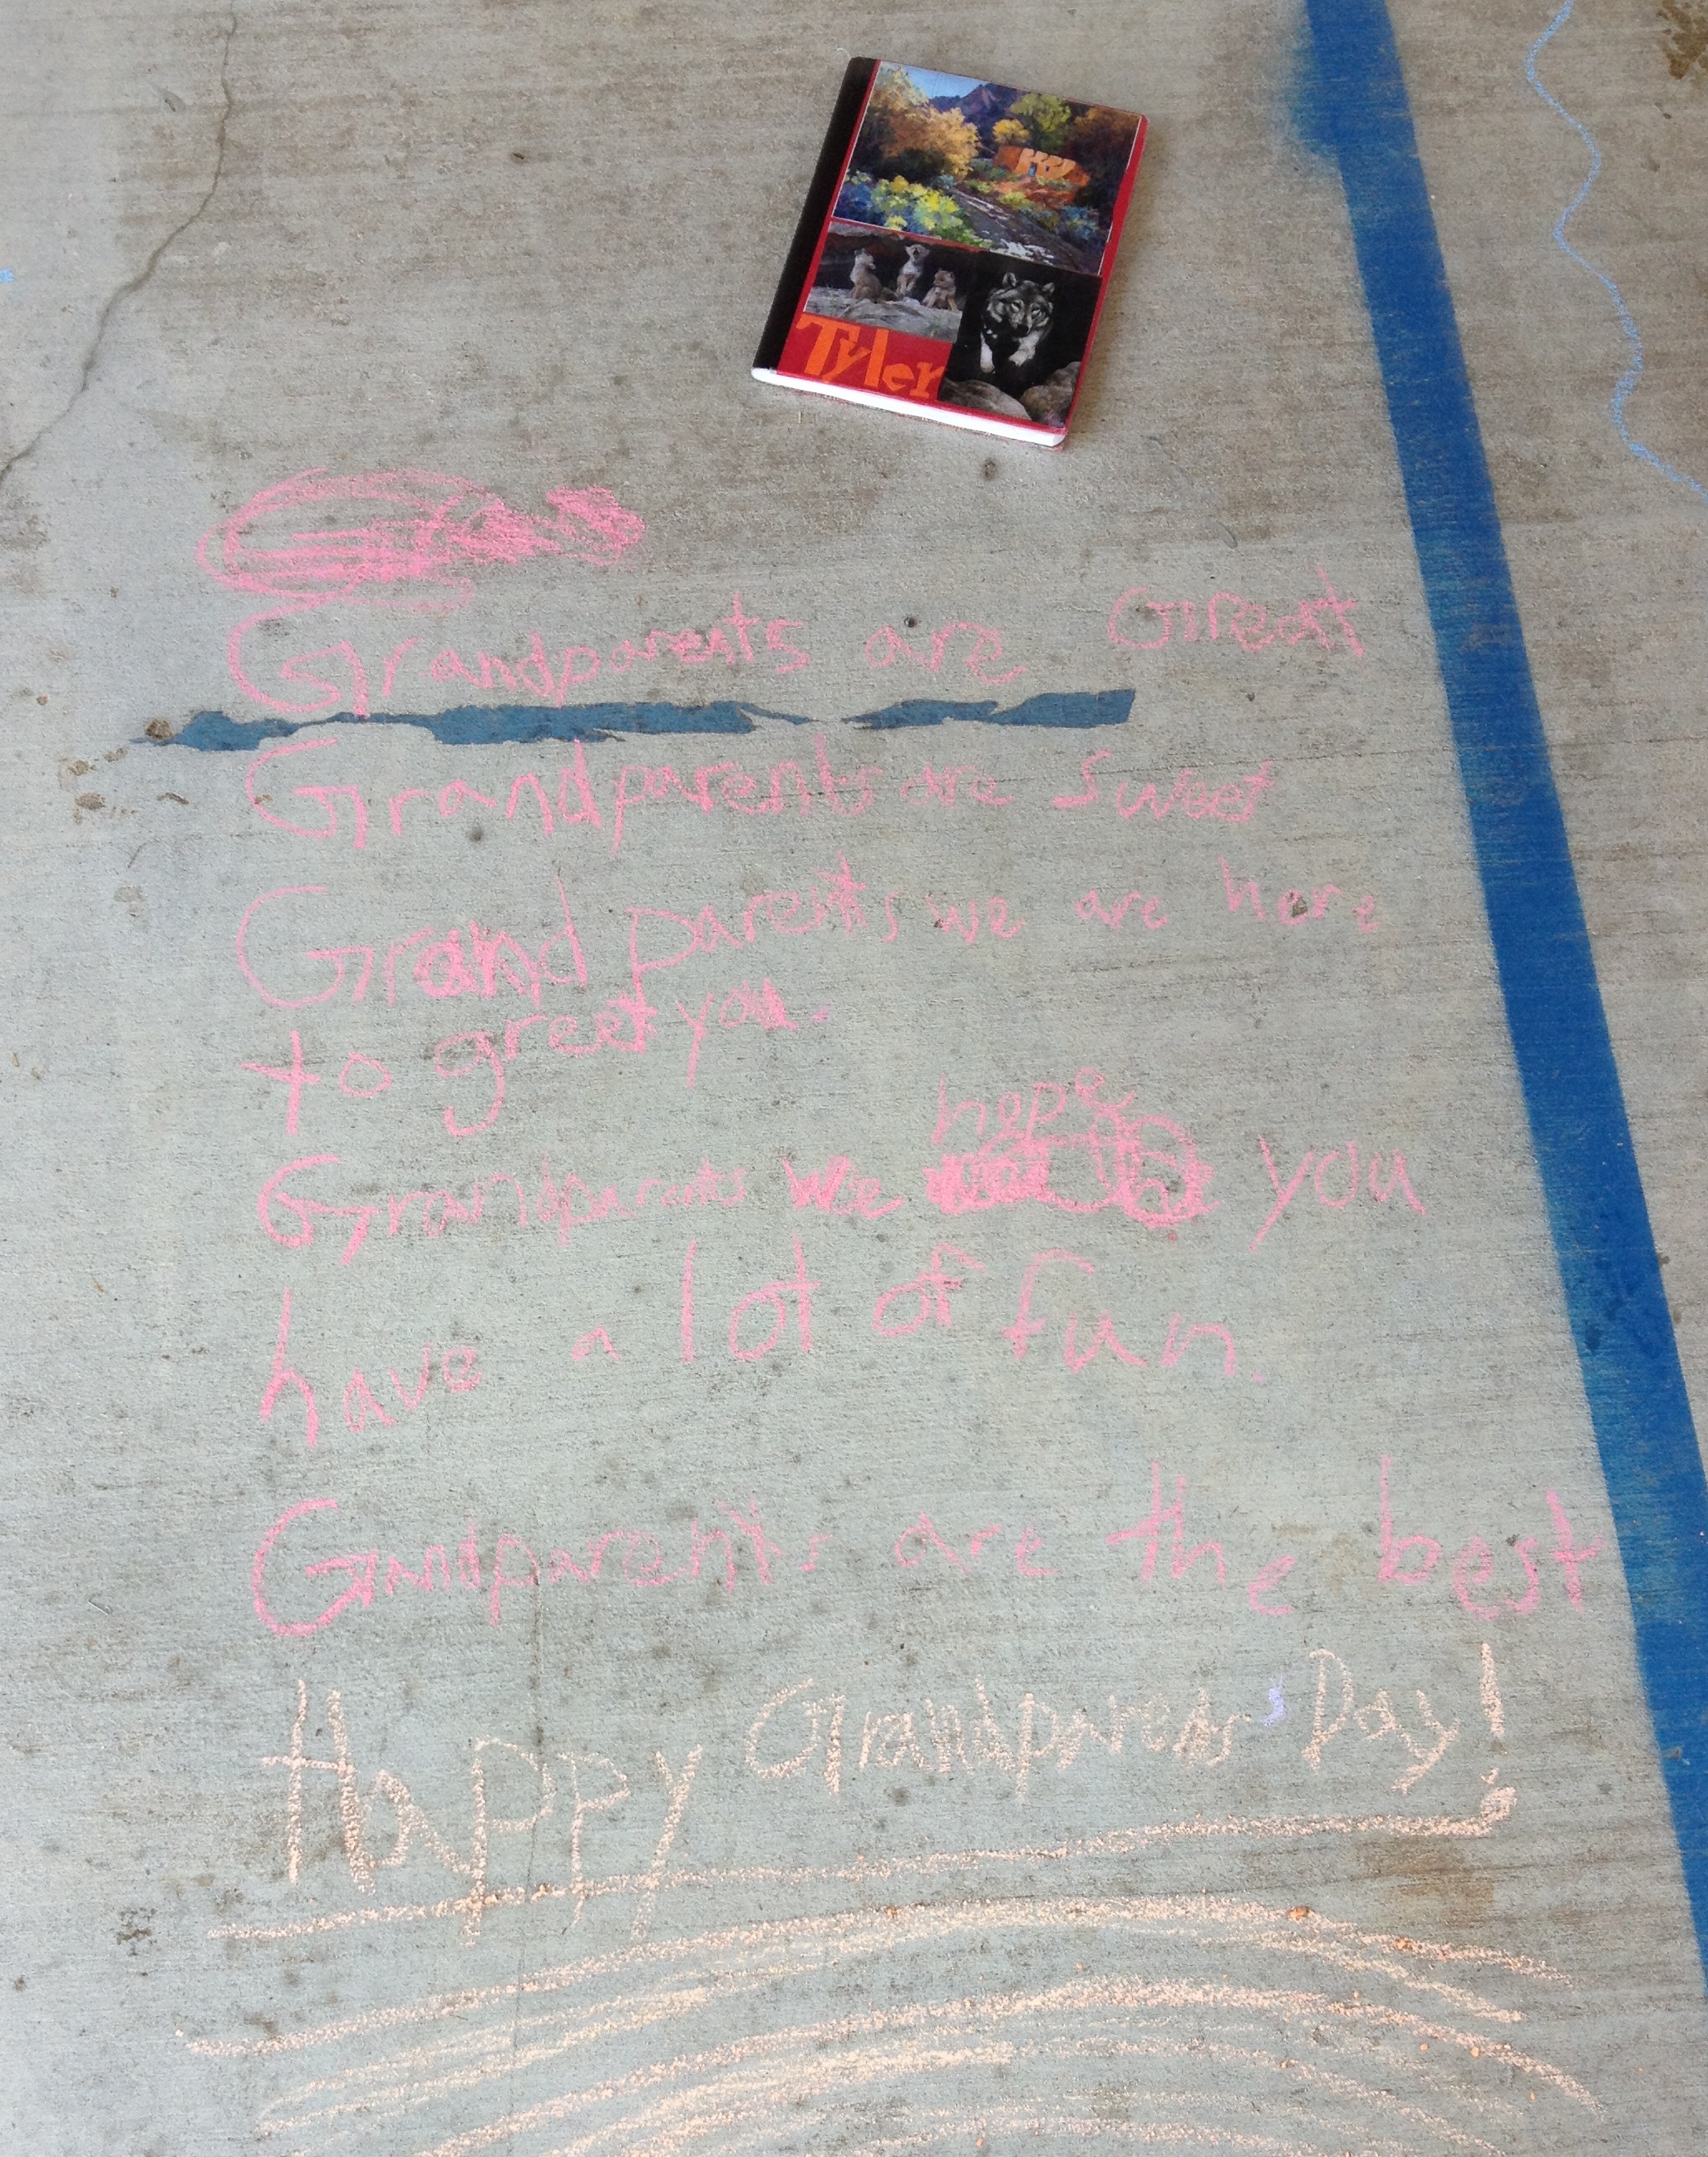 Tyler
Grandparents are Great
Grandparents are sweet
Grandparents we are here
to greet you.
hope
Grandparents we you
have a lot of fun.
Grandparents are the best
Happy Grandparents' Day!